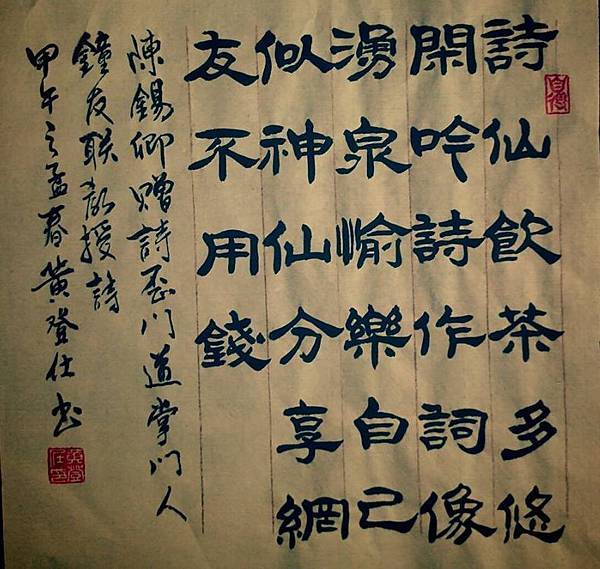 詩仙飲茶多悠
閑吟詩作詞像
湧泉愉樂自己
似神仙分享網
友不用錢
陳錫卿贈詩歪门道掌门人
鐘友联教授詩
甲午之孟春黄登仕书